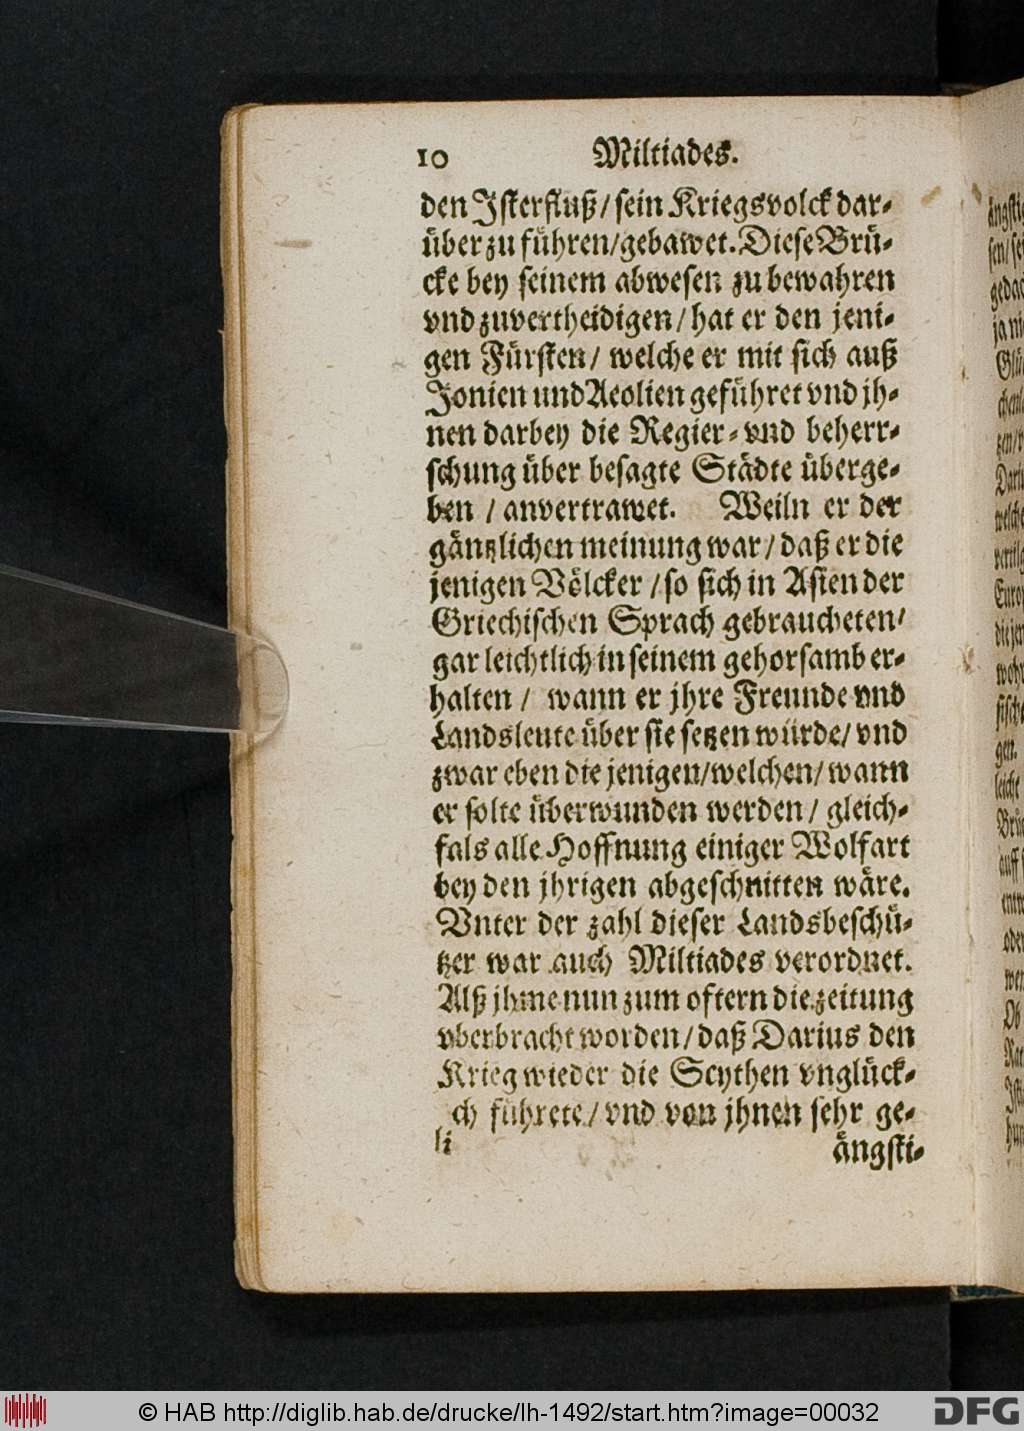 10 Miltiades.
den Isterfluß/ sein Kriegsvolck dar-
über zu führen/gebawet. Diese Brü-
cke bey seinem abwesen zu bewahren
vnd zuvertheidigen/ hat er den jeni-
gen Fürsten/ welche er mit sich auß
Jonien und Aeolien geführet vnd jh-
nen darbey die Regier- vnd beherr-
schung über besagte Städte überge-
ben / anvertrawet. Weiln er der
gäntzlichen meinung war/ daß er die
jenigen Völcker / so sich in Asien der
Griechischen Sprach gebraucheten/
gar leichtlich in seinem gehorsamb er-
halten / wann er jhre Freunde vnd
Landsleute über sie setzen würde/ vnd
zwar eben die jenigen/welchen/ wann
er solte überwunden werden / gleich-
fals alle Hoffnung einiger Wolfart
bey den jhrigen abgeschnitten wäre.
Vnter der zahl dieser Landsbeschü-
tzer war auch Miltiades verordnet.
Alß jhme nun zum oftern die zeitung
vberbracht worden/ daß Darius den
Krieg wieder die Scythen vnglück-
ch führete/ vnd von jhnen sehr ge-
li ängsti-
© HAB http://diglib.hab.de/drucke/lh-1492/start.htm?image=00032
DFG